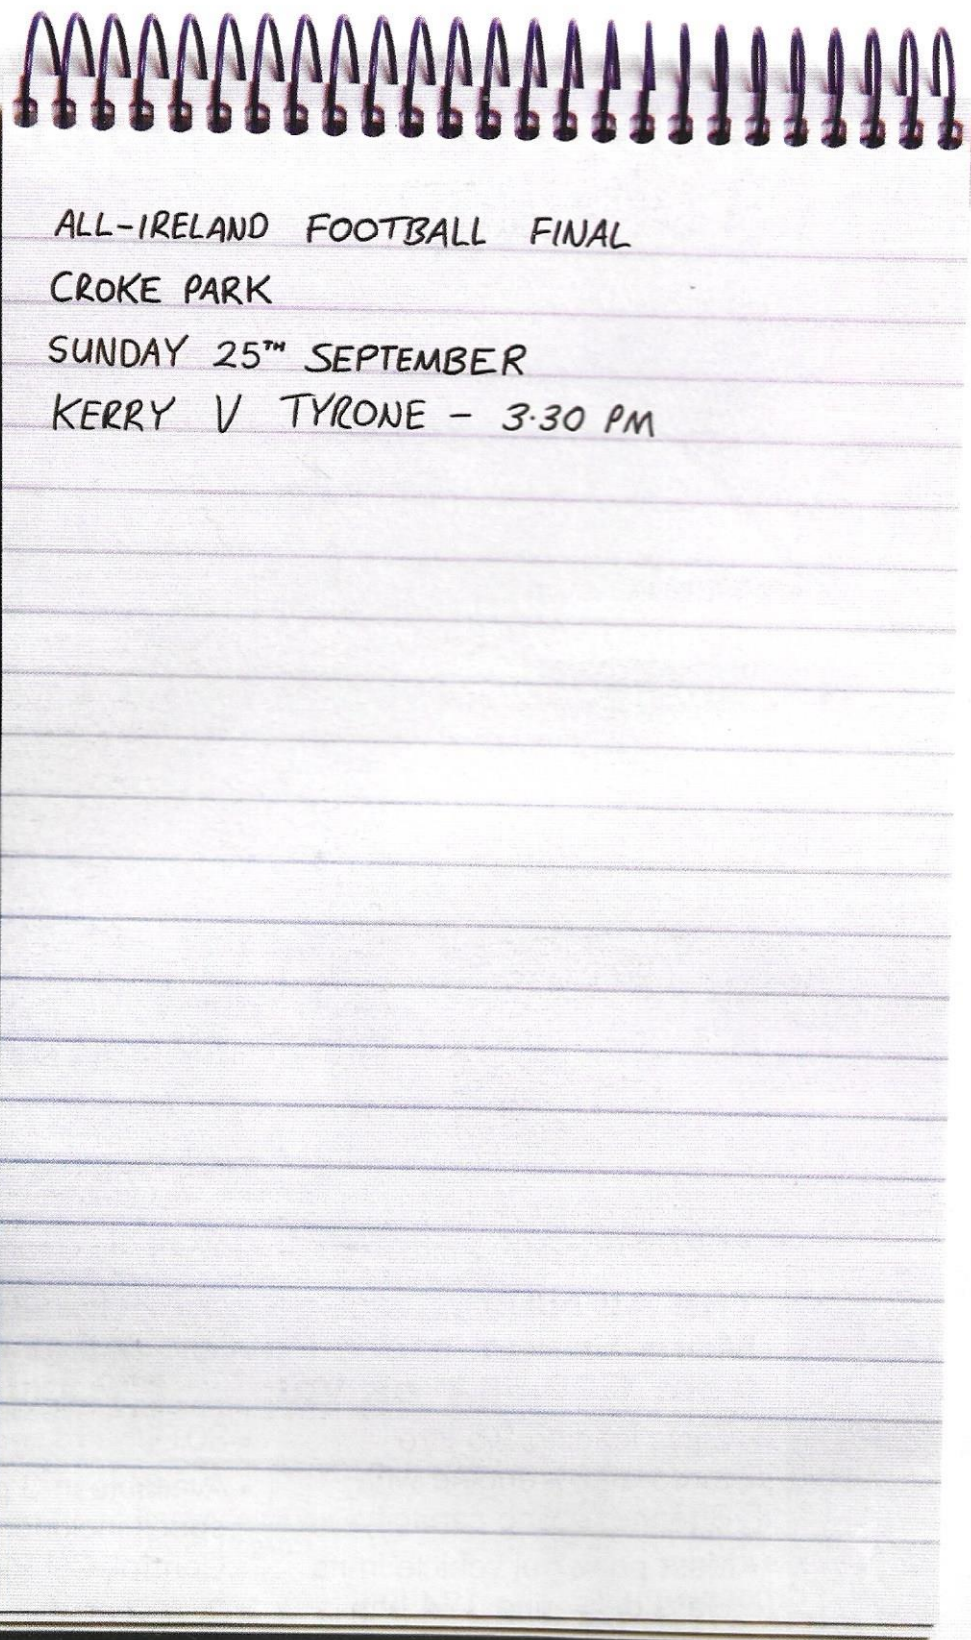 ALL-IRELAND FOOTBALL FINAL
CROKE PARK
SUNDAY 25TH SEPTEMBER
KERRY V TYRONE - 3.30 PM